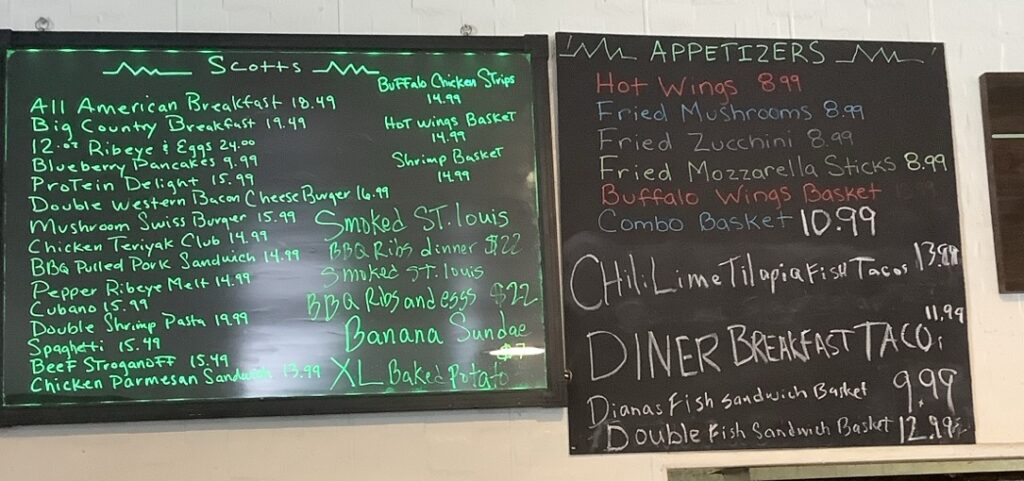 Scotts
All American Breakfast 18.49
Big Country Breakfast 19.49
12.oz Ribeye & Eggs 24.00
Blueberry Pancakes 9.99
Protein Delight 15.99
Double Western Bacon Cheese Burger 16.99
Mushroom Swiss Burger 15.99
Chicken Teriyak Club 14.99
BBQ Pulled Pork Sandwich 14.99
Pepper Ribeye Melt 14.99
Cubano 15.99
Double Shrimp Pasta 19.99
Spaghetti 15.49
Beef Stroganoff 15.49
Chicken Parmesan Sandwich 13.99
Buffalo Chicken Strips
14.99
Hot wings Basket
14.99
Shrimp Basket
14.99
Smoked St. Louis
BBQ Ribs dinner $22
Smoked St. Louis
BBQ Ribs and eggs $22
Banana Sundae
$7
XL Baked Potato
APPETIZERS
Hot Wings 8.99
Fried Mushrooms 8.99
Fried Zucchini 8.99
Fried Mozzarella Sticks 8.99
Buffalo Wings Basket
Combo Basket 10.99
Chili Lime Tilapia Fish Tacos 13.99
11.99
DINER BREAKFAST TACO
Dianas Fish Sandwich Basket 9.99
Double Fish Sandwich Basket 12.99